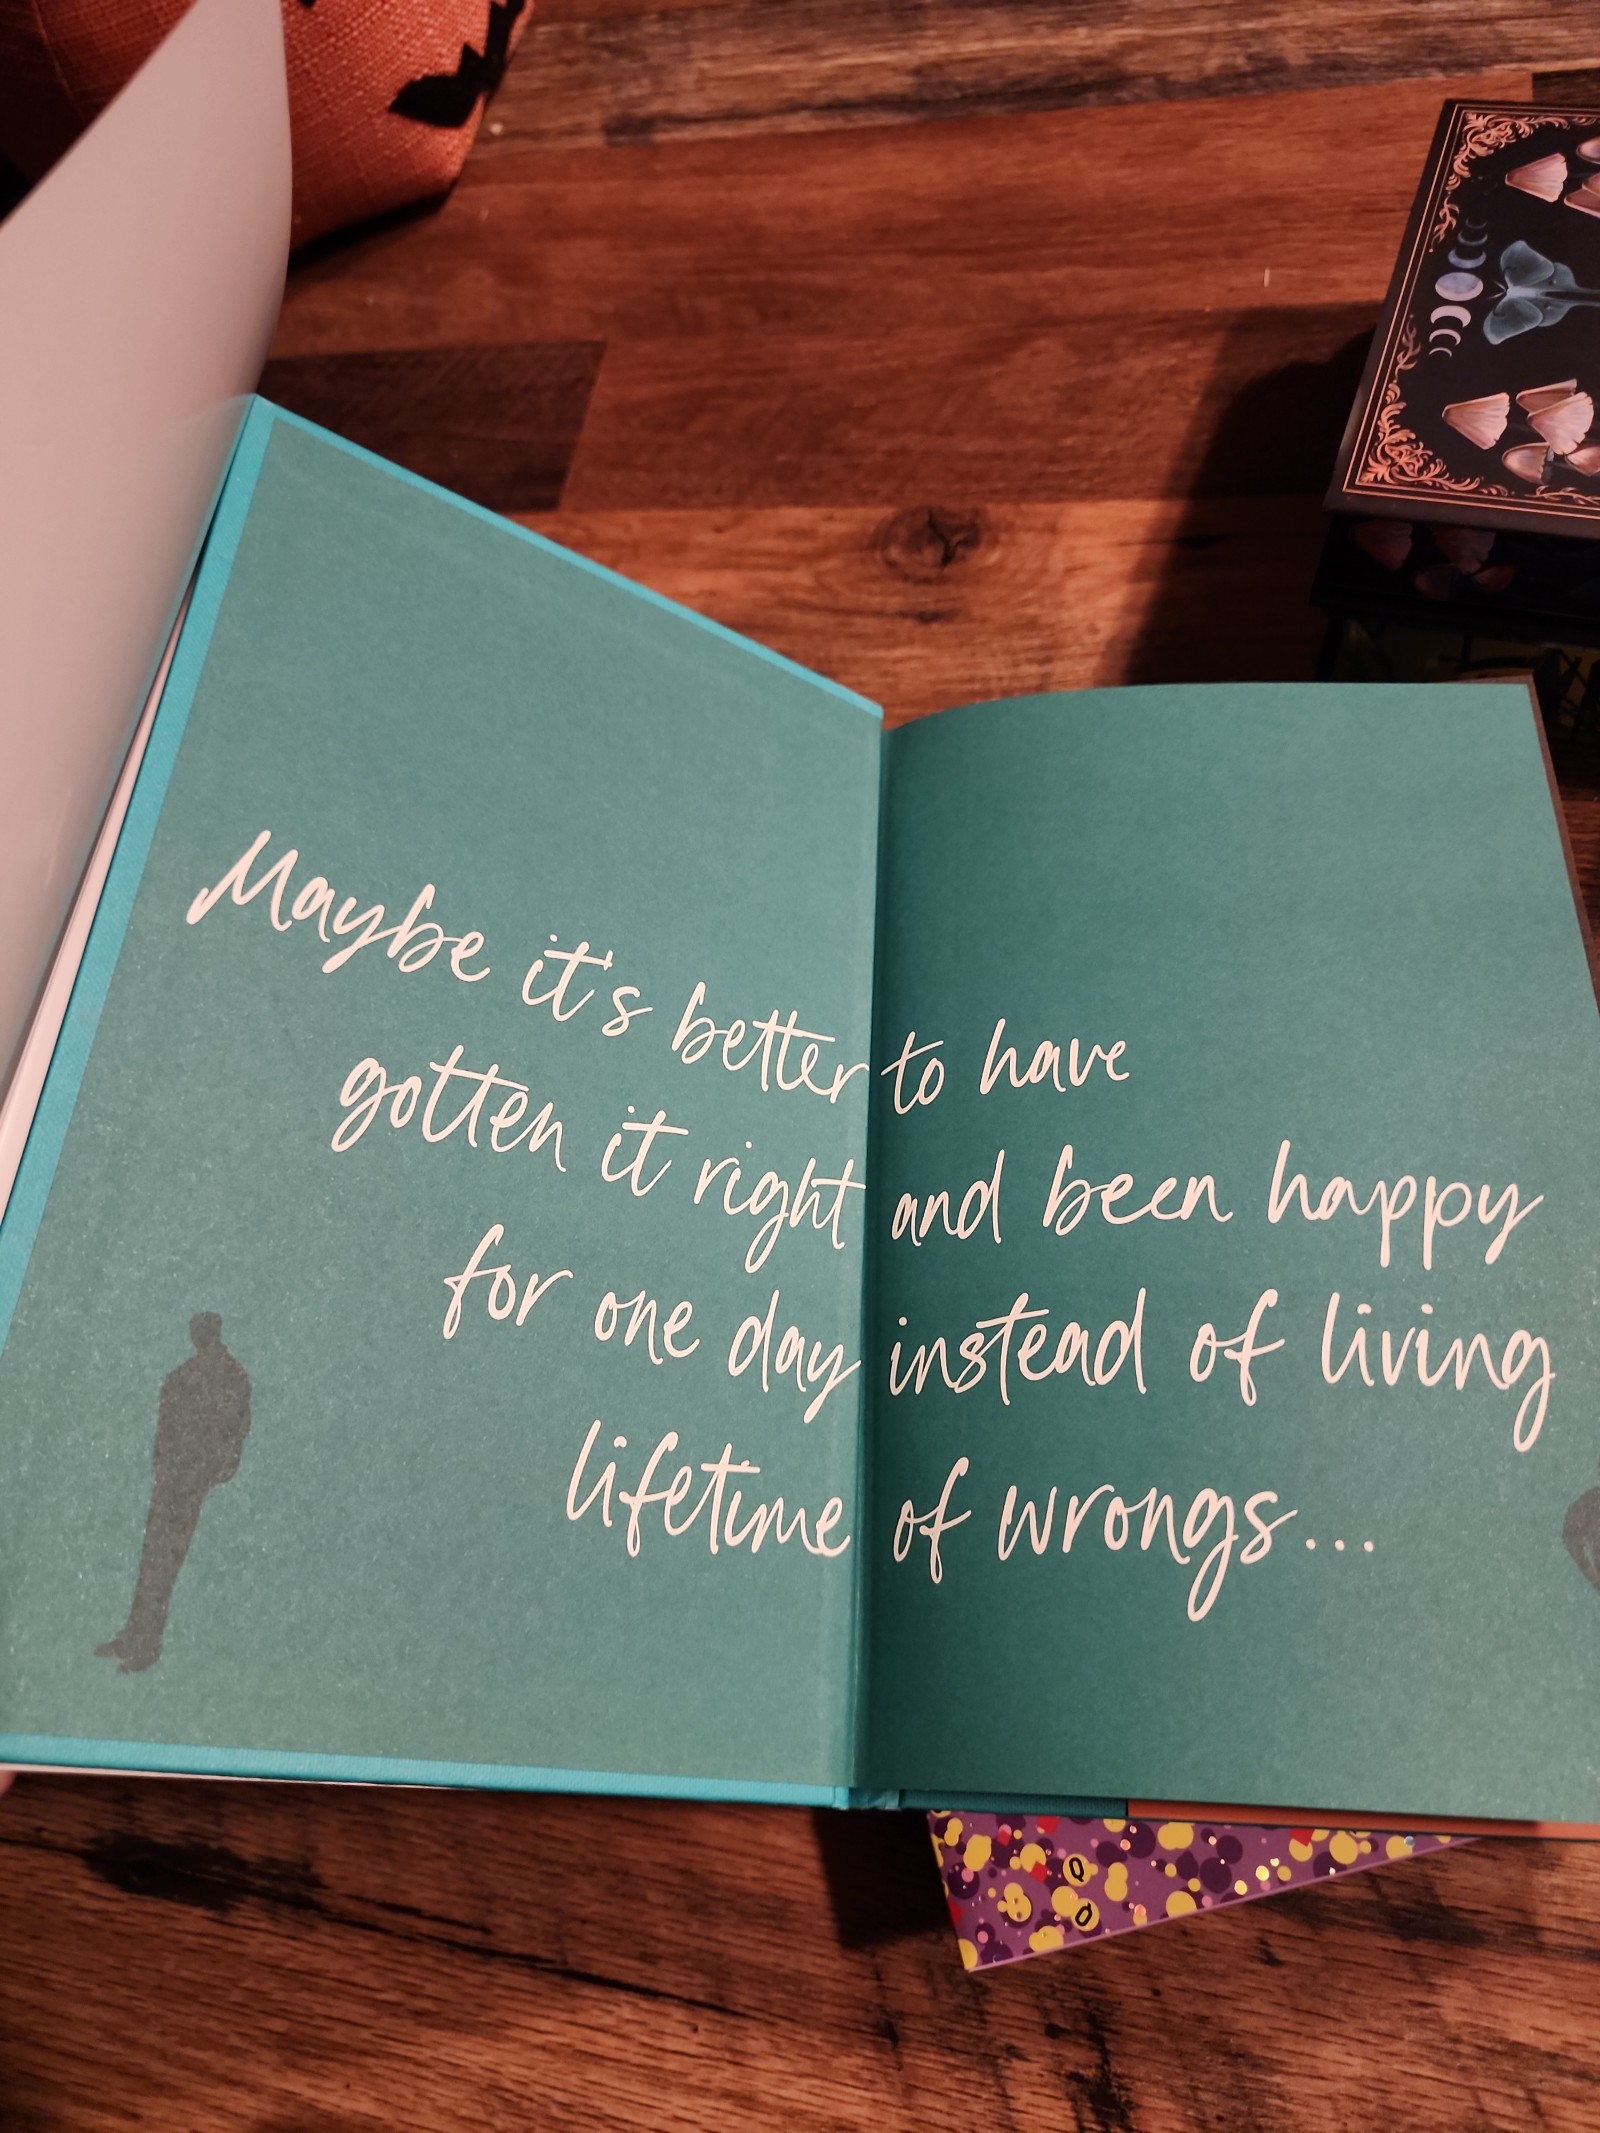 Maybe it's better to have
gotten it right and been happy
for one day instead of living
lifetime of wrongs...
Q
Q